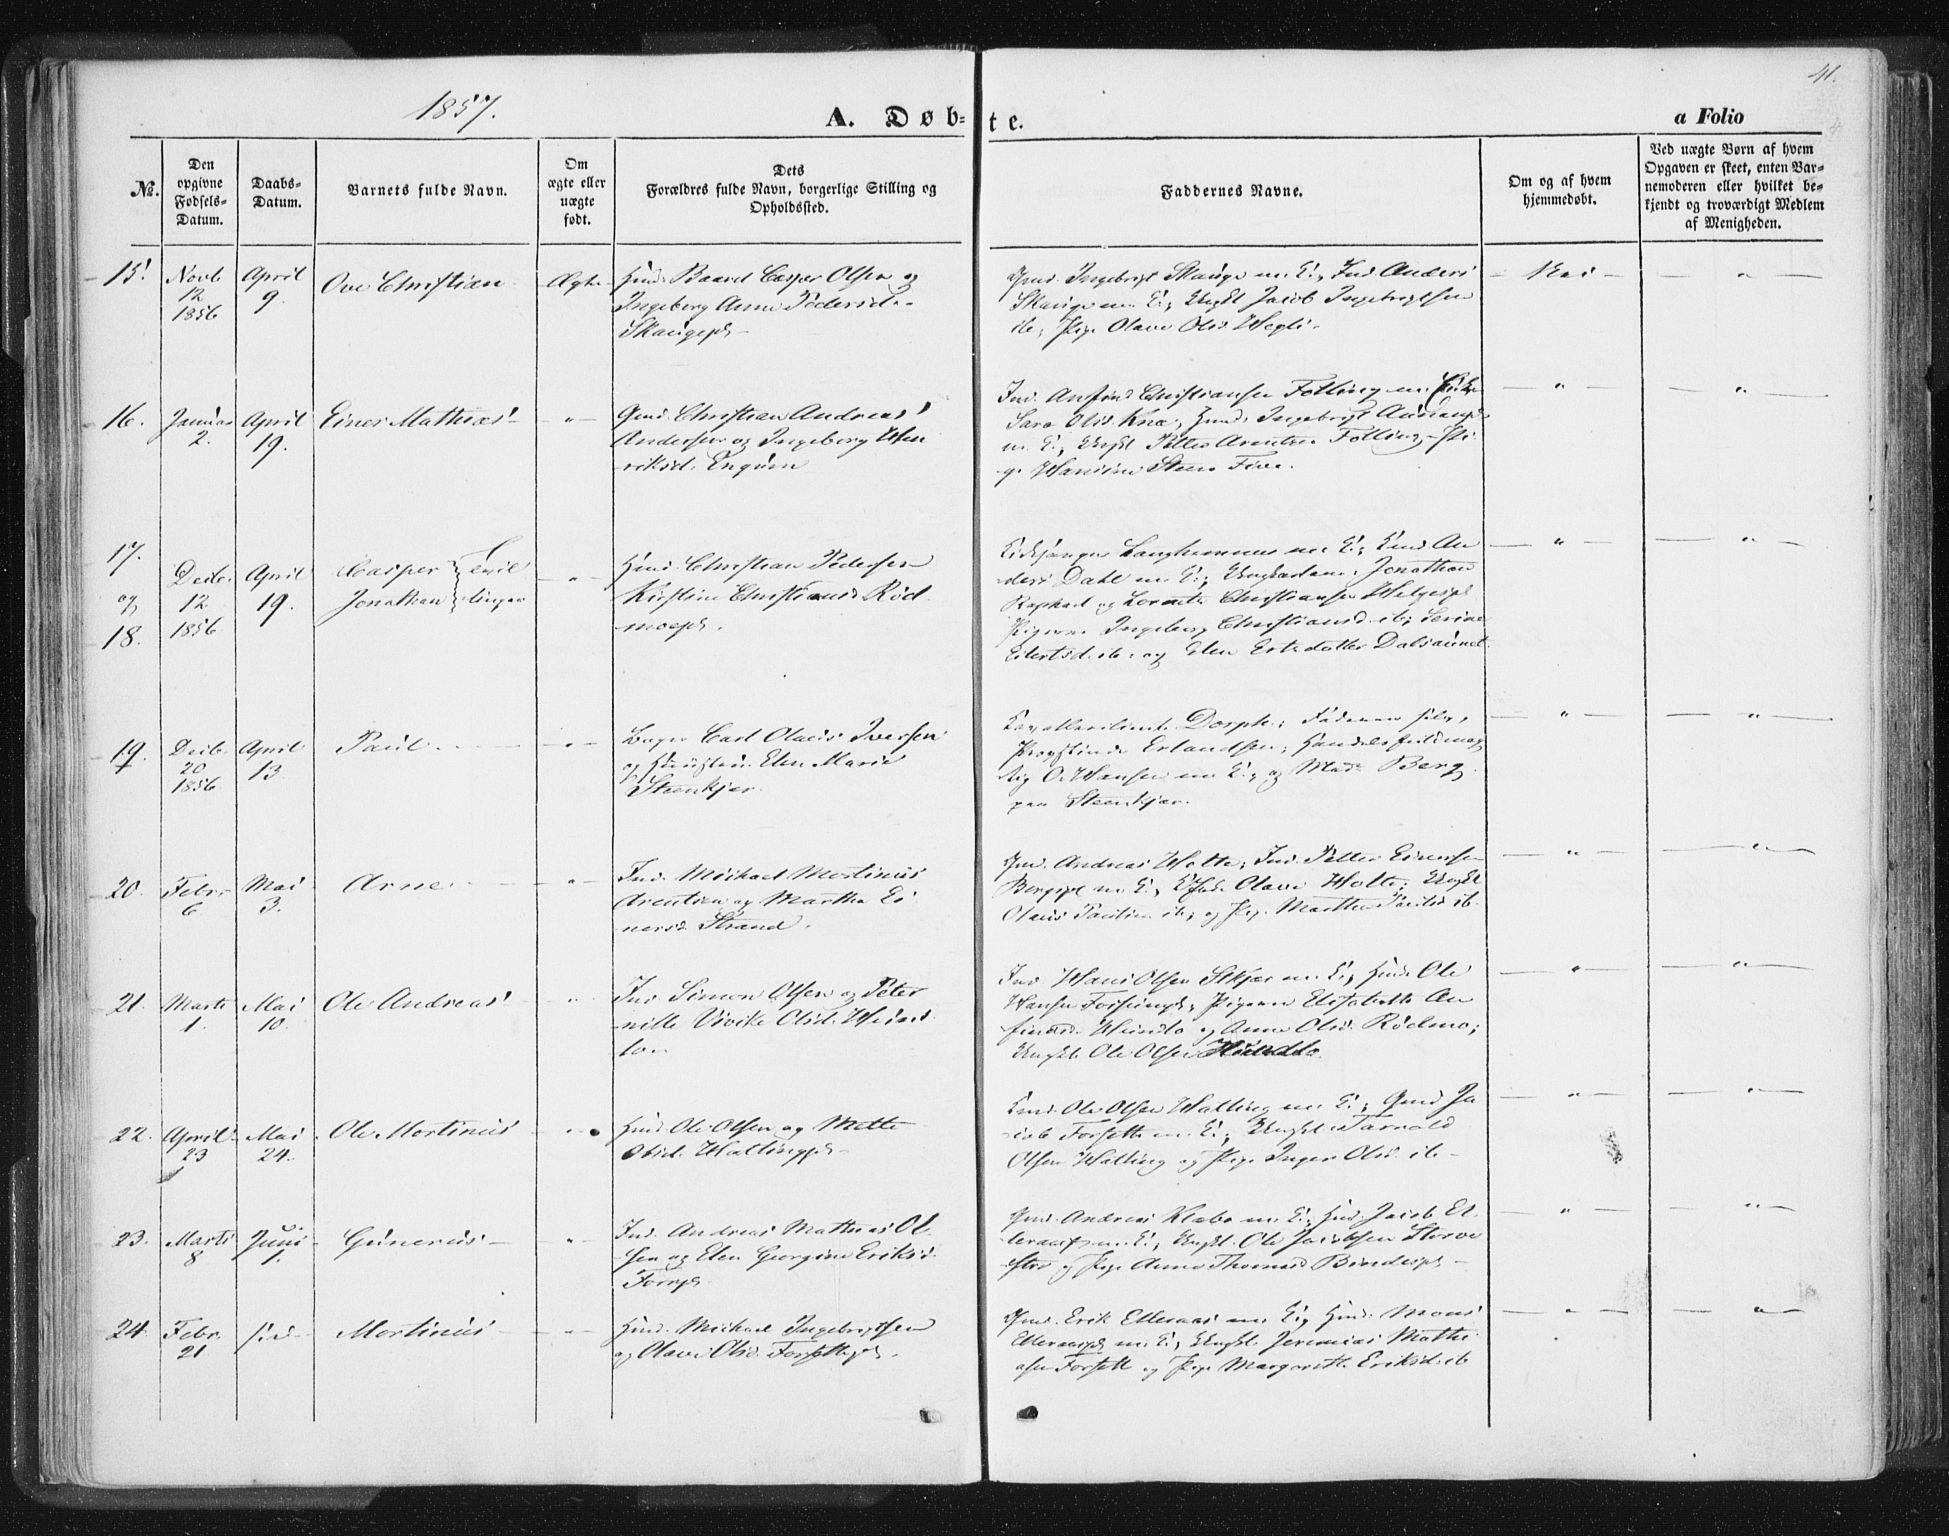 1857.
A. Døb=te.
a Folio
41.
No.
Den opgivne Fødsels-Datum.
Daabs-Datum.
Barnets fulde Navn.
Om ægte eller uægte født.
Dets Forældres fulde Navn, borgerlige Stilling og Opholdssted.
Faddernes Navne.
Om og af hvem hjemmedøbt.
Ved uægte Børn af hvem Opgaven er skeet, enten Barnemoderen eller hvilket bekjendt og troværdigt Medlem af Menigheden.
15.
Novb. 12 1856
April 9.
Ove Christian
Ægte
Huusm. Baard Casper Olsen og
Ingeborg Anna Pedersd.
Skaugepl.
Gmd. Ingebrigt Skauge m. K., Ind. Anders
Skauge m. K., Ungkl Jacob Ingebrigtsen
ib., Pige Olave Olsd. Wegli.
Nei
16.
Januar 2.
April 19.
Einer Mathias
Gmd. Christian Andreas
Andersen og Ingeborg Hen
riksd. Engum
Ind. Anfind Christiansen Følling m.
Sara Olsd. Kne, Huusm. Ingebrigt
m. K., Ungkl Petter Arentsen Følling, Pi
ge Hansine Steen Five.
17. og 18.
Decbr. 12 1856
April 19.
Casper
Jonathan
Tvil
linger
Huusm. Christian Pedersen
Kirstine Christiansd. Rød
moepl.
Kirkesanger Langhammer m. K., Gmd. An
ders Dahl m. K., Ungkarlene Jonathan
Raphael og Lorents Christiansen Helgepl.
Pigerne Ingeborg Christiansd. ib., Serine
Eilertsd. ib. og Elen Ertsdatter Dalsaunet.
19.
Decbr. 20 1856
April 13
Paul
Bager Carl Olaus Iversen
og Hustru Elen Marie
Steenkjer.
Dorph, Faderen selv,
Provstinde Erlandsen, Handelsfuldmæg
tig O. Hansen m. K., og Mad. Berg
paa Steenkjær.
20.
Febr. 6
Mai 3.
Arne
Ind. Michael Mortinus
Arentsen og Martha Ei
nersd. Strand.
Gmd. Andreas Holte, Ind. Petter Einersen
Bergspl m. K., Olava Holte, Ungkl
Olaus Paulsen ib., og Pig. Martha Paulsd. ib.
21.
Marts 1.
Mai 10.
Ole Andreas
Ind. Simon Olsen og Peter
nille Vivike Olsd. Hund
lo.
Ind Hans Olsen m. K., Huusm. Ole
Hansen Pigerne Elisabeth An
findsd. Hundlo og Anne Olsd. Rødmo,
Ungkl. Ole Olsen Hundlo.
22.
April 23
Mai 24.
Ole Mortinus
Huusm. Ole Olsen og Mette
Olsd. Hallingpl.
Gmd. Ole Olsen Halling m. K., Gmd Ja
cob Forseth m. K., Ungkl. Tarald
Olsen Halling og Pige Inger Olsd. ib.
23.
Marts 8
Juni 1.
Gunerius
Ind. Andreas Mathias Ol
sen og Elen Georgine Eriksd.
Gmd. Andreas Klebo m. K., Huusm. Jacob El
leraas m. K., Ungkl. Ole Jacobsen
og Pige Anne Thomasd. Bindespl.
24.
Febr. 21
Mortinus
Huusm. Michael Ingebrigtsen
og Olave Olsd. Forsethpl.
Gmd. Erik Elleraas m. K., Huusm. Mons
Elleraaspl m. K., Ungkl. Jeremias Mathi
asen Forseth og Pige Margareth Eriksd. ib